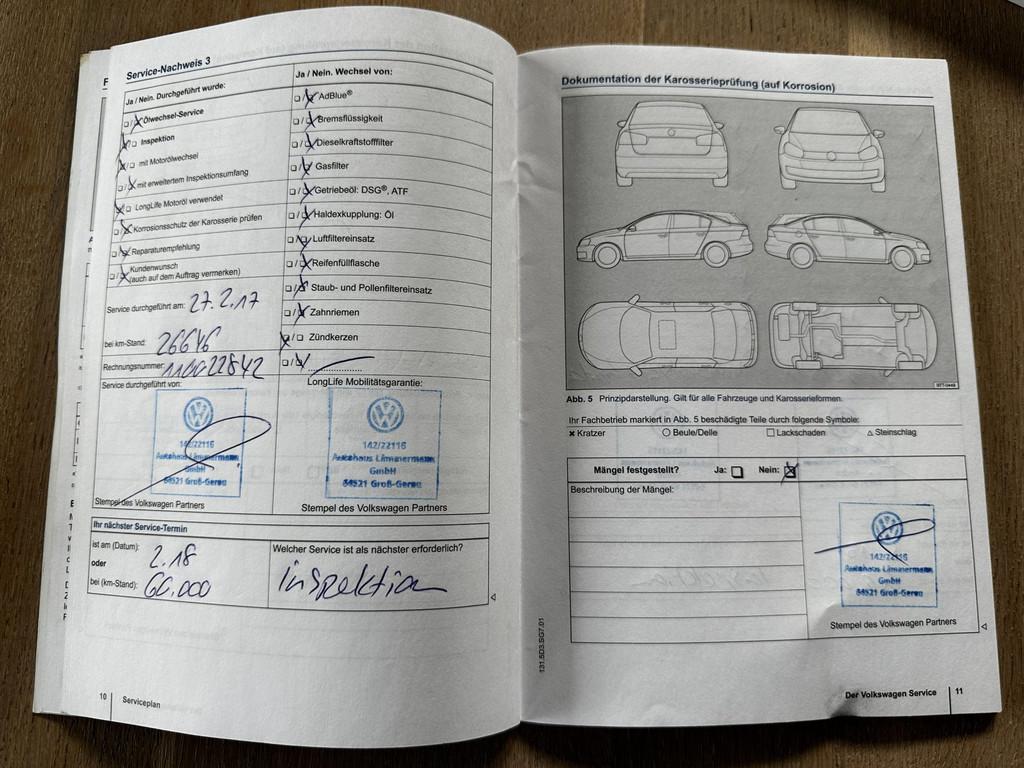 Service-Nachweis 3
Ja / Nein. Durchgeführt wurde:
Ölwechsel-Service
Inspektion
mit Motorölwechsel
mit erweitertem Inspektionsumfang
LongLife Motoröl verwendet
Korrosionsschutz der Karosserie prüfen
Reparaturempfehlung
Kundenwunsch
(auch auf dem Auftrag vermerken)
Service durchgeführt am: 27.2.17
bei km-Stand: 26646
Rechnungsnummer: 110022842
Service durchgeführt von:
142/22116
Autohaus Limmermann
GmbH
64521 Groß-Gerau
Stempel des Volkswagen Partners
Ja / Nein. Wechsel von:
AdBlue®
Bremsflüssigkeit
Dieselkraftstofffilter
Gasfilter
Getriebeöl: DSG®, ATF
Haldexkupplung: Öl
Luftfiltereinsatz
Reifenfüllflasche
Staub- und Pollenfiltereinsatz
Zahnriemen
Zündkerzen
LongLife Mobilitätsgarantie:
142/22116
Autohaus Limmermann
GmbH
64521 Groß-Gerau
Stempel des Volkswagen Partners
Ihr nächster Service-Termin
ist am (Datum): 2.18
oder
bei (km-Stand): 60.000
Welcher Service ist als nächster erforderlich?
Inspektion
10 Serviceplan
Dokumentation der Karosserieprüfung (auf Korrosion)
Abb. 5 Prinzipdarstellung. Gilt für alle Fahrzeuge und Karosserieformen.
Ihr Fachbetrieb markiert in Abb. 5 beschädigte Teile durch folgende Symbole:
× Kratzer ○ Beule/Delle □ Lackschaden △ Steinschlag
Mängel festgestellt? Ja: Nein:
Beschreibung der Mängel:
142/22116
Autohaus Limmermann
GmbH
64521 Groß-Gerau
Stempel des Volkswagen Partners
131.5D3.SG7.01
Der Volkswagen Service 11